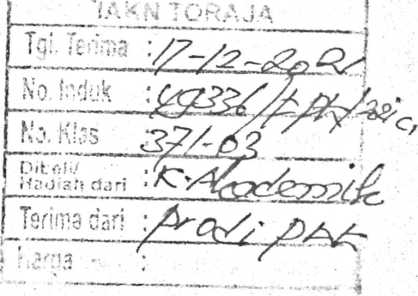 IAKN TORAJA
Tgl. Terima : 17-12-2021
No. Induk :
No. Klas 371-03
Dibeli/
Hadiah dari : K. Akademik
Terima dari : prodi PAK
Harga :